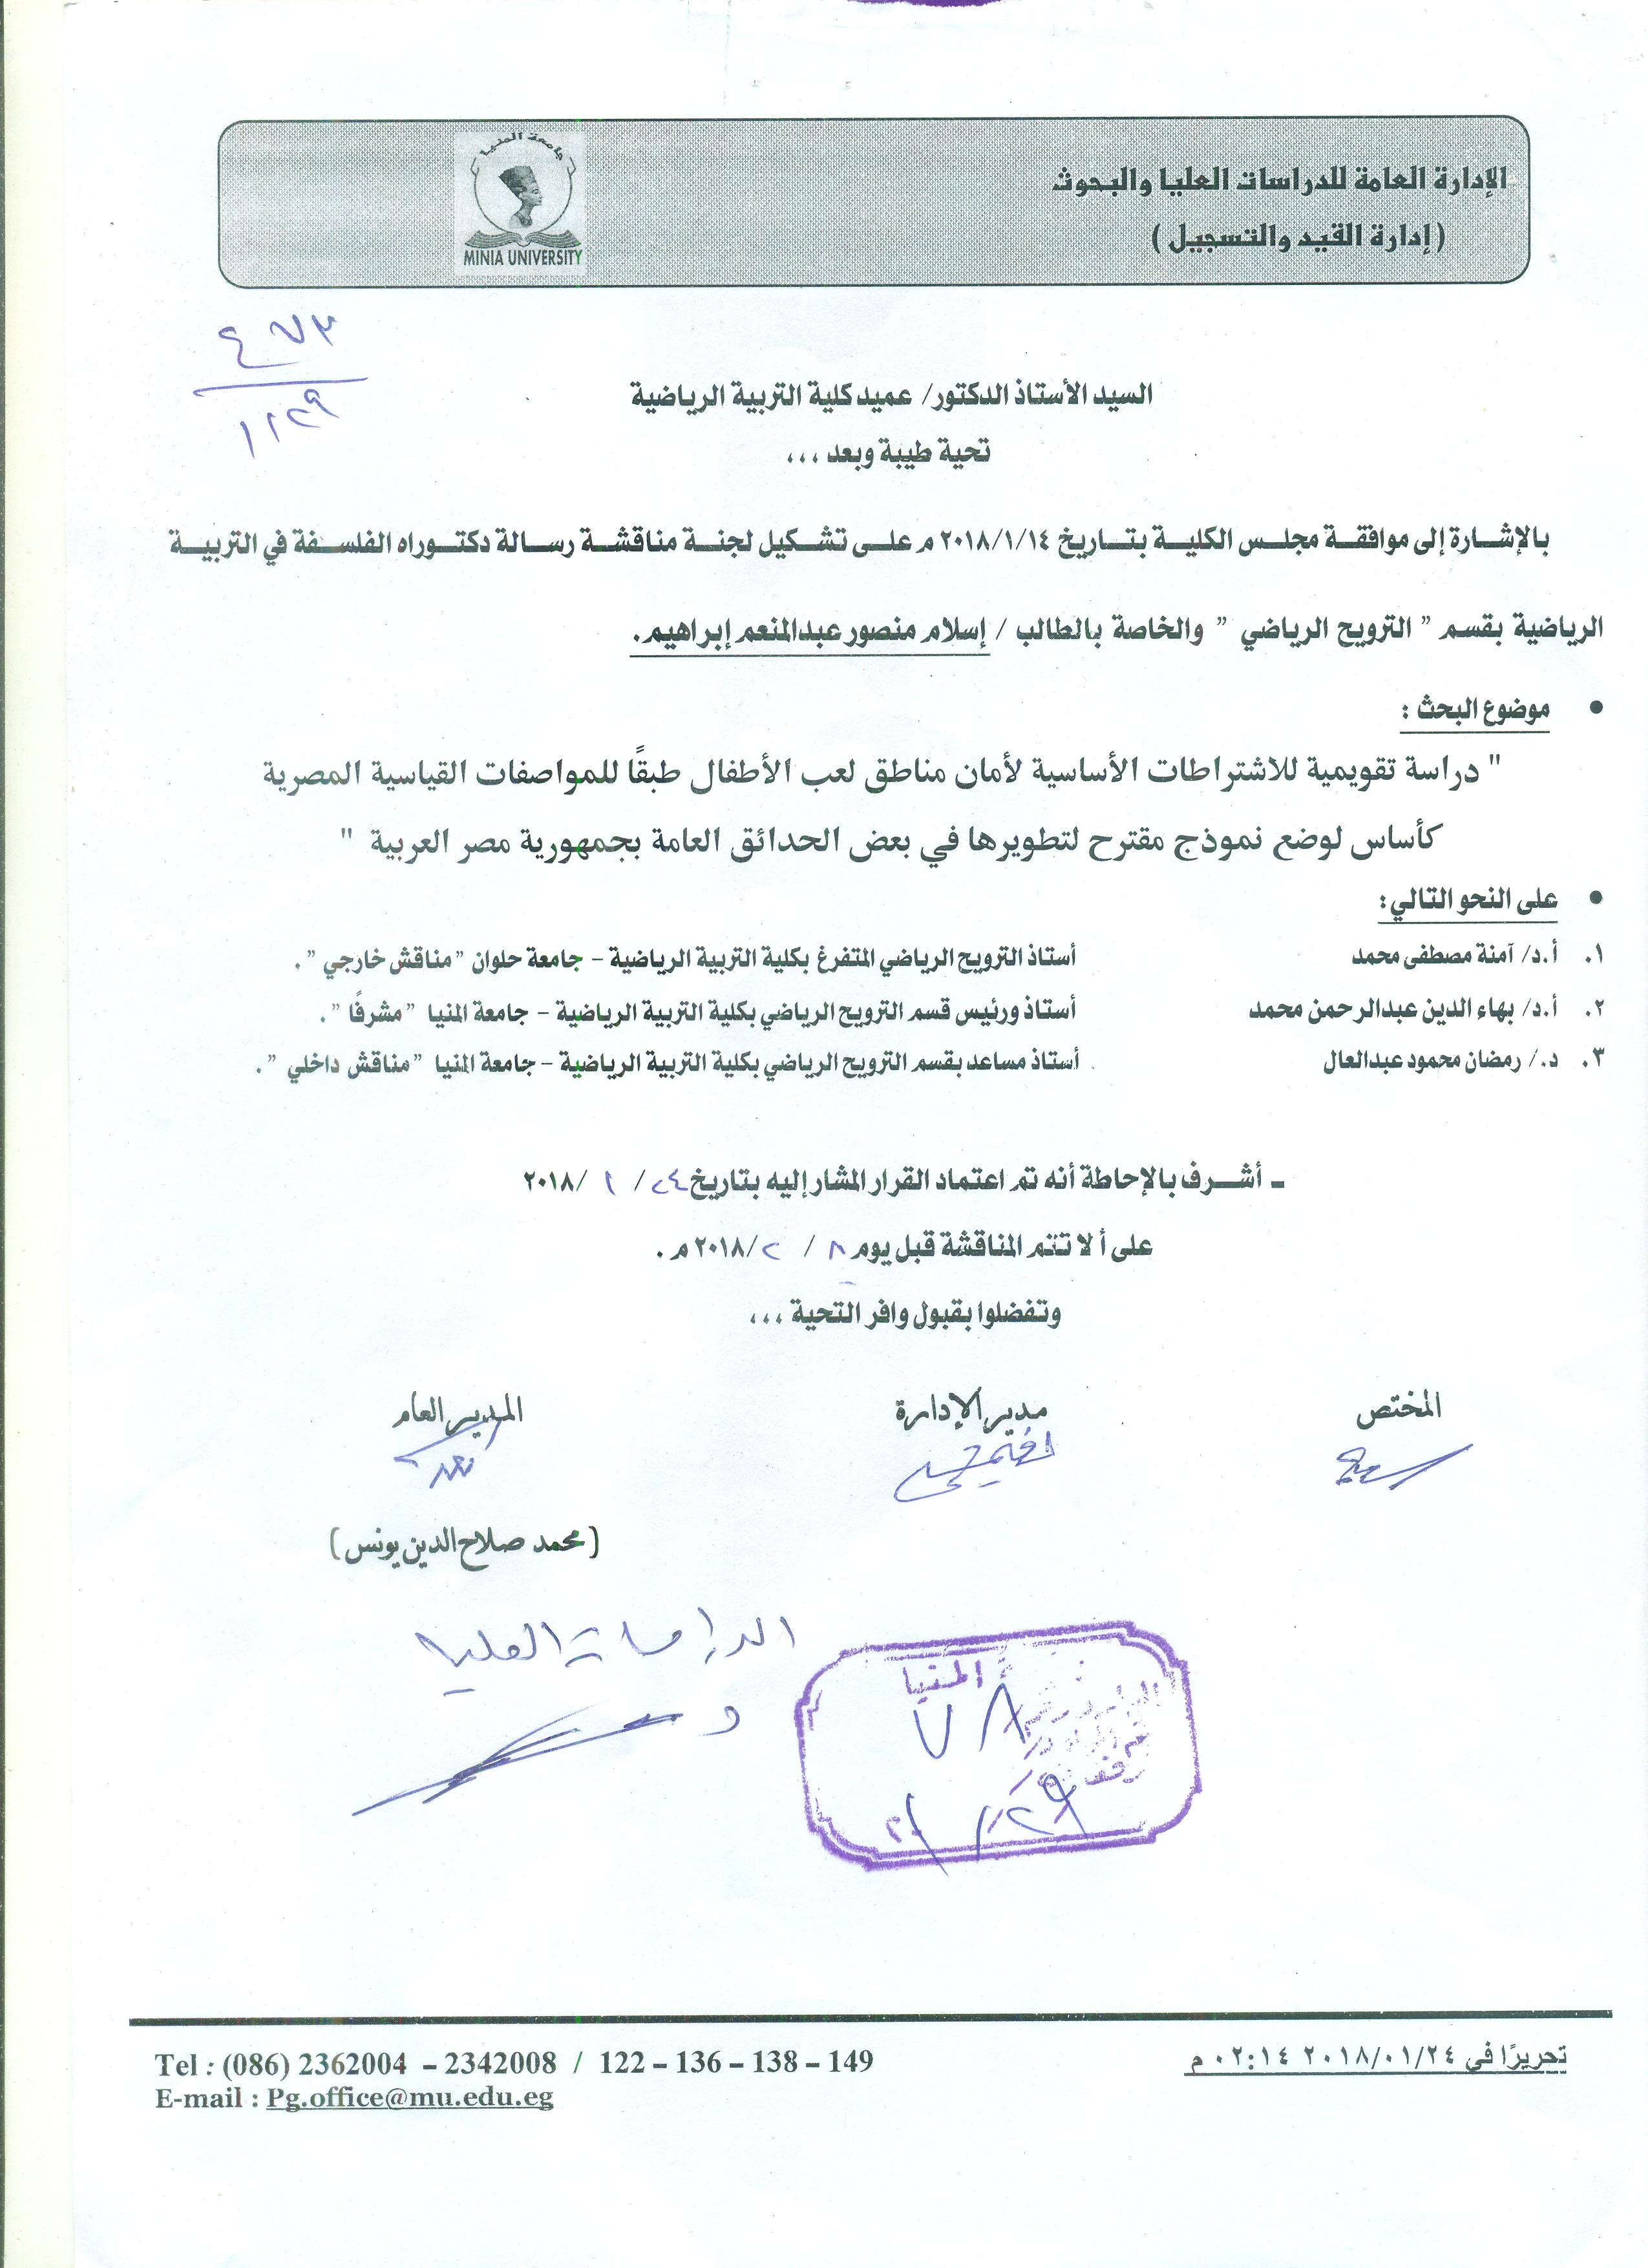 الإدارة العامة للدراسات العليا والبحوث
(إدارة القيد والتسجيل)
جامعة المنيا
MINIA UNIVERSITY
٤٧٣
١/٢٩
السيد الأستاذ الدكتور/ عميد كلية التربية الرياضية
تحية طيبة وبعد ،،،
بالإشارة إلى موافقة مجلس الكلية بتاريخ ٢٠١٨/١/١٤ م على تشكيل لجنة مناقشة رسالة دكتوراه الفلسفة في التربية
الرياضية بقسم " الترويح الرياضي " والخاصة بالطالب / إسلام منصور عبدالمنعم إبراهيم.
• موضوع البحث :
" دراسة تقويمية للاشتراطات الأساسية لأمان مناطق لعب الأطفال طبقًا للمواصفات القياسية المصرية
كأساس لوضع نموذج مقترح لتطويرها في بعض الحدائق العامة بجمهورية مصر العربية "
• على النحو التالي:
١. أ.د/ آمنة مصطفى محمد أستاذ الترويح الرياضي المتفرغ بكلية التربية الرياضية – جامعة حلوان "مناقش خارجي ".
٢. أ.د/ بهاء الدين عبدالرحمن محمد أستاذ ورئيس قسم الترويح الرياضي بكلية التربية الرياضية – جامعة المنيا "مشرفًا ".
٣. د./ رمضان محمود عبدالعال أستاذ مساعد بقسم الترويح الرياضي بكلية التربية الرياضية – جامعة المنيا "مناقش داخلي ".
ـ أشرف بالإحاطة أنه تم اعتماد القرار المشار إليه بتاريخ ٢٤/ ١ /٢٠١٨
على ألا تتم المناقشة قبل يوم ٨ / ٢ /٢٠١٨ م .
وتفضلوا بقبول وافر التحية ،،،
المختص مدير الإدارة المدير العام
(محمد صلاح الدين يونس)
الدراسات العليا
المنيا
٧٨
١/٢٩
تحريرًا في ٢٠١٨/٠١/٢٤ ٠٢:١٤ م
Tel : (086) 2362004 – 2342008 / 122 – 136 – 138 – 149
E-mail : Pg.office@mu.edu.eg